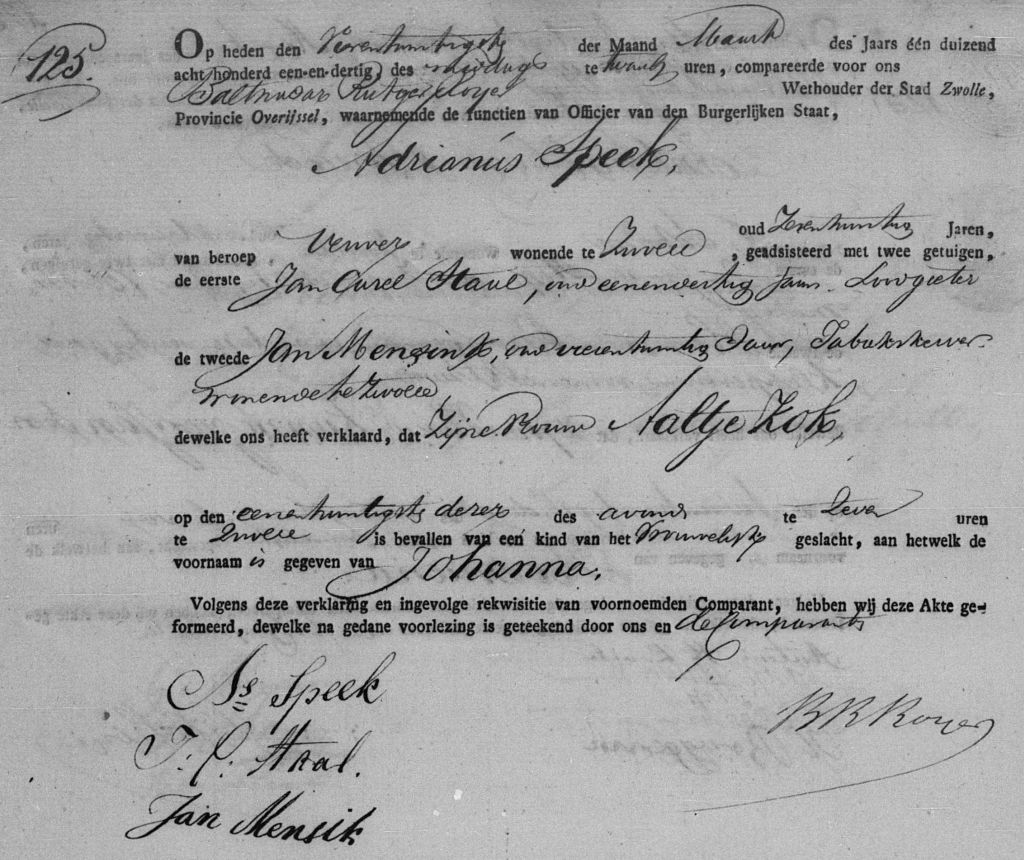 125.
Op heden den Vierentwintigste der Maand Maart des Jaars één duizend
acht honderd een-en-dertig, des middags te twaalf uren, compareerde voor ons
Balthazar Rutger Royer Wethouder der Stad Zwolle,
Provincie Overijssel, waarnemende de functien van Officier van den Burgerlijken Staat,
Adrianus Speek,
oud Jaren,
van beroep Verwer wonende te Zwolle, geadsisteerd met twee getuigen,
de eerste Jan Carel Staal, oud eenendertig Jaar Loodgieter
de tweede Jan Mensink, oud vierentwintig Jaar, Tabakskerver
wonende te Zwolle
dewelke ons heeft verklaard, dat Zijne Vrouw Aaltje Kok,
op den eenentwintigste dezer des avonds te Zeven uren
te Zwolle is bevallen van een kind van het Vrouwelijk geslacht, aan hetwelk de
voornaam is gegeven van Johanna.
Volgens deze verklaring en ingevolge rekwisitie van voornoemden Comparant, hebben wij deze Akte ge-
formeerd, dewelke na gedane voorlezing is geteekend door ons en de Comparanten
As Speek
J. C. Staal.
B R Royer
Jan Mensik